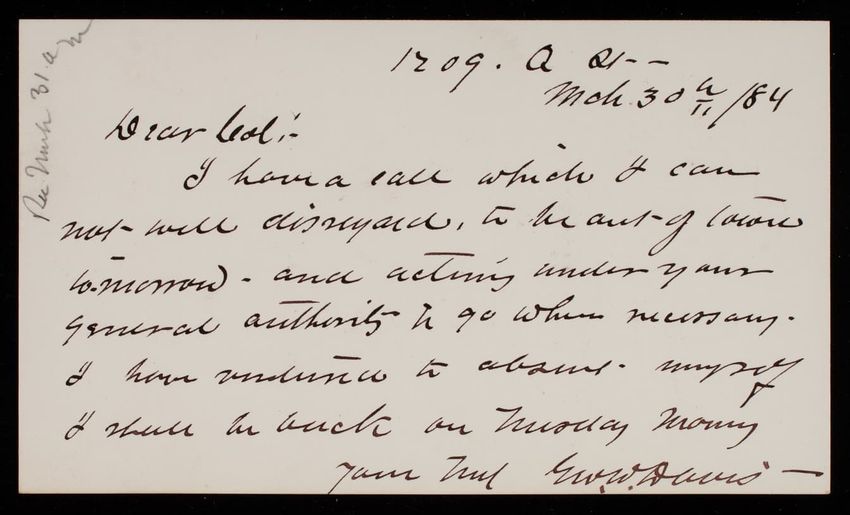 1709. Q St--
Mch 30th /84
Dear Col:-
I have a call which I can
not well disregard, to be out of town
to-morrow - and acting under your
general authority to go when necessary.
I have ventured to absent myself
I shall be back on Tuesday Morning
Yours Truly Geo. W. Davis -
Rec March 31 am